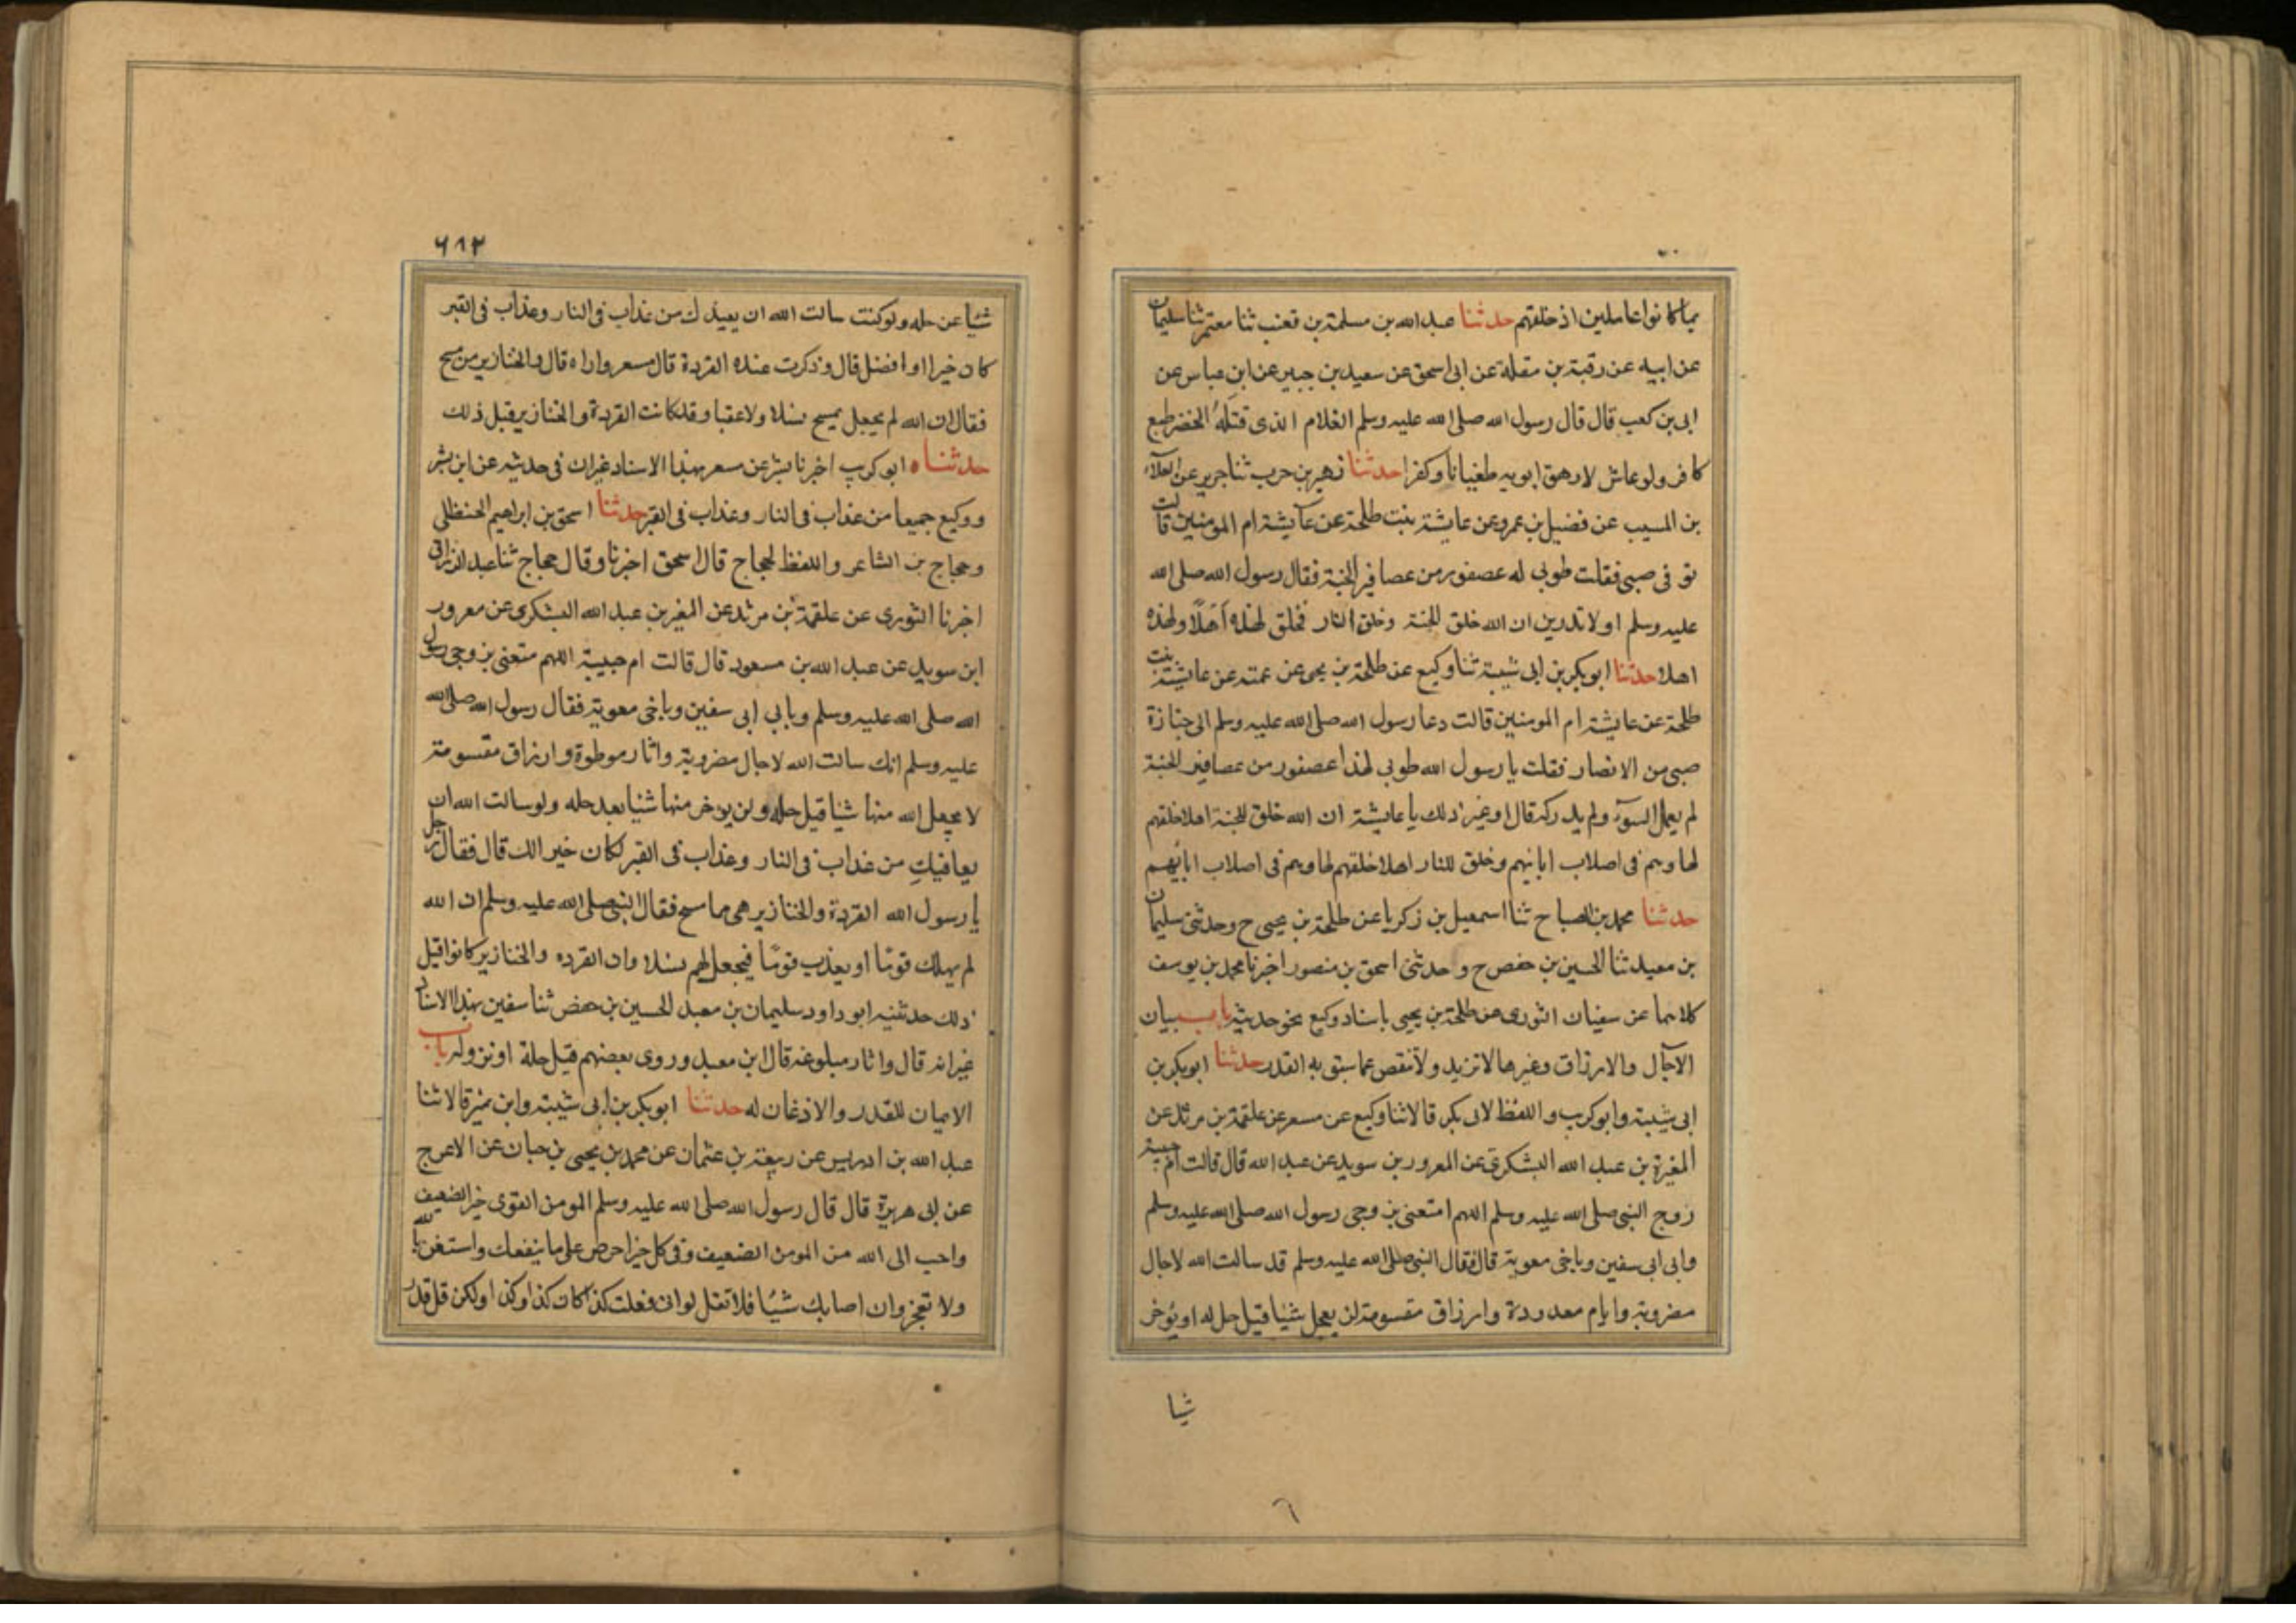 بما كانوا عاملين اذ خلقهم حدثنا عبد الله بن مسلمة بن قعنب ثنا معتمر بن سليمان
عن ابيه عن رقبة بن مقلة عن ابى اسحق عن سعيد بن جبير عن ابن عباس عن
ابى بن كعب قال قال رسول الله صلى الله عليه وسلم الغلام الذى قتله الخضر طبع
كافر ولو عاش لارهق ابويه طغيانا وكفرا حدثنا زهير بن حرب ثنا جرير عن العلآء
بن المسيب عن فضيل بن عمرو عن عايشة بنت طلحة عن عآيشة ام المومنين قالت
توفى صبى فقلت طوبى له عصفور من عصافير الجنة فقال رسول الله صلى الله
عليه وسلم اولا تدرين ان الله خلق الجنة وخلق النار فخلق لهذه اهلا ولهذه
اهلا حدثنا ابو بكر بن ابى شيبة ثنا وكيع عن طلحة بن يحى عن عمته عن عايشة بنت
طلحة عن عايشة ام المومنين قالت دعا رسول الله صلى الله عليه وسلم الى جنازة
صبى من الانصار فقلت يا رسول الله طوبى لهذا عصفور من عصافير الجنة
لم يعمل السوٓء ولم يدركه قال او غير ذلك يا عايشة ان الله خلق للجنة اهلا خلقهم
لها وهم فى اصلاب ابائهم وخلق للنار اهلا خلقهم لها وهم فى اصلاب ابائهم
حدثنا محمد بن الصباح ثنا اسمعيل بن زكريا عن طلحة بن يحيى ح وحدثنى سليمان
بن معبد ثنا الحسين بن حفص ح وحدثنى اسحق بن منصور اخبرنا محمد بن يوسف
كلاهما عن سفيان الثورى عن طلحة بن يحيى باسناد وكيع نحو حديثه باب بيان
الآجال والارزاق وغيرها لا تزيد ولا تنقص عما سبق به القدر حدثنا ابو بكر بن
ابى شيبة وابو كريب واللفظ لابى بكر قالا ثنا وكيع عن مسعر عن علقمة بن مرثد عن
المغيرة بن عبد الله اليشكرى عن المعرور بن سويد عن عبد الله قال قالت ام حبيبة
زوج النبى صلى الله عليه وسلم اللهم امتعنى بزوجى رسول الله صلى الله عليه وسلم
وابى ابى سفين وباخى معوية قال فقال النبى صلى الله عليه وسلم قد سالت الله لاجال
مضروبة وايام معدودة وارزاق مقسومة لن يعجل شئيا قبل حله او يؤخر
شيا
٦
٦١٢
شئيا عن حله ولو كنت سالت الله ان يعيذك من عذاب فى النار وعذاب فى القبر
كان خيرا او افضل قال وذكرت عنده القردة قال مسعر واراه قال والخنازير من مسح
فقال ان الله لم يجعل لمسيح نسلا ولا عقبا وقد كانت القردة والخنازير قبل ذلك
حدثناه ابو كريب اخبرنا بشر عن مسعر بهذا الاسناد غير ان فى حديثه عن ابن بشر
ووكيع جميعا من عذاب فى النار وعذاب فى القبر حدثنا اسحق بن ابراهيم الحنظلى
وحجاج بن الشاعر واللفظ لحجاج قال اسحق اخبرنا وقال حجاج ثنا عبد الرزاق
اخبرنا الثورى عن علقمة بن مرثد عن المغير بن عبد الله اليشكرى عن معرور
ابن سويد عن عبد الله بن مسعود قال قالت ام حبيبة اللهم متعنى بزوجى رسول
الله صلى الله عليه وسلم وبابى ابى سفين وباخى معوية فقال رسول الله صلى الله
عليه وسلم انك سالت الله لاجال مضروبة واثار موطوة وارزاق مقسومة
لا يعجل الله منها شئيا قبل حله ولن يوخر منها شئيا بعد حله ولو سالت الله ان
يعافيك من عذاب فى النار وعذاب فى القبر لكان خيرا لك قال فقال رجل
يا رسول الله القردة والخنازير هى مما مسح فقال النبى صلى الله عليه وسلم ان الله
لم يهلك قوما او يعذب قوما فيجعل لهم نسلا وان القرده والخنازير كانوا قبل
ذلك حدثنيه ابو داود سليمان بن معبد الحسين بن حفص ثنا سفين بهذا الاسناد
غير انه قال واثار مبلوغه قال ابن معبد وروى بعضهم قبل حلة او نزوله باب
الايمان للقدر والاذعان له حدثنا ابو بكر بن ابى شيبة وابن نمير قالا ثنا
عبد الله بن ادريس عن ربيعة بن عثمان عن محمد بن يحيى بن حبان عن الاعرج
عن ابى هريرة قال قال رسول الله صلى الله عليه وسلم المومن القوى خير الضعيف
واحب الى الله من المومن الضعيف وفى كل خير احرص على ما ينفعك واستعن بالله
ولا تعجز وان اصابك شيئا فلا تقل لو انى فعلت كذا كان كذا وكذا ولكن قل قدر